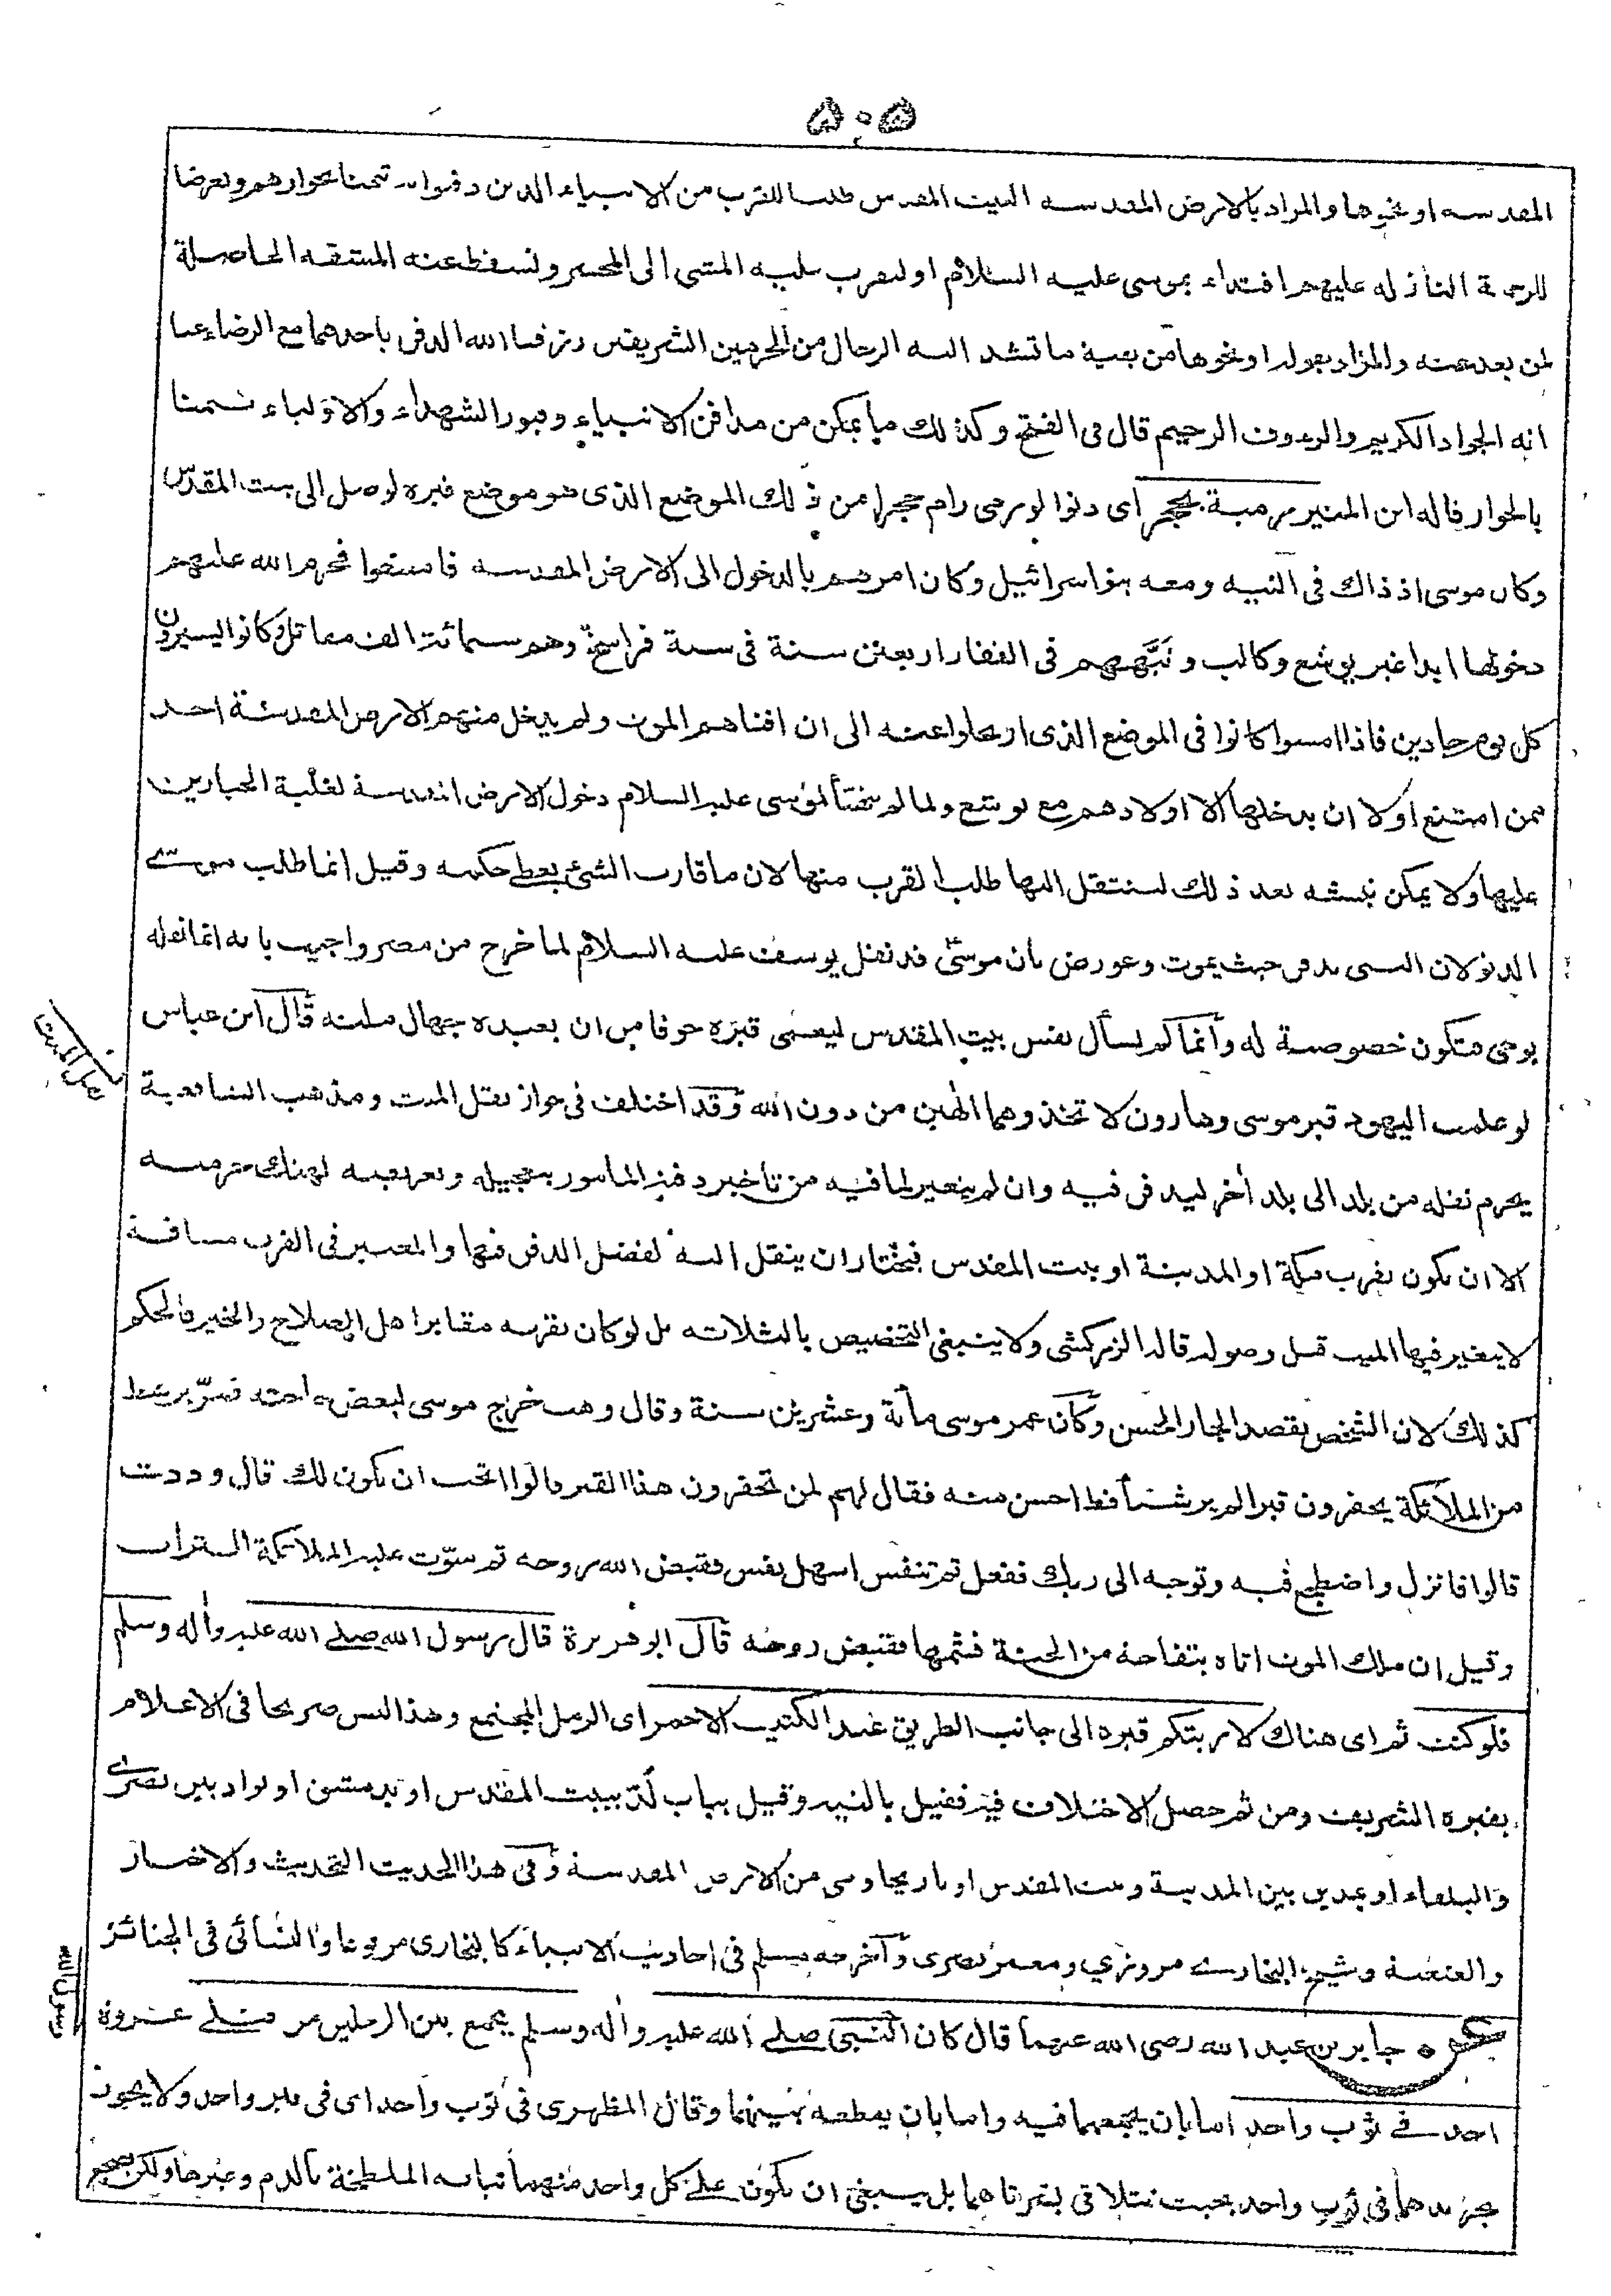 ۵۰۵
المقدسة او نحوها والمراد بالارض المقدسة البيت المقدس طلبا للقرب من الانبياء الذين دفنوا به تيمنا بجوارهم وتعرضا
للرحمة النازله عليهم اقتداء بموسى عليه السلام او ليقرب عليه المشى الى المحشر وتسقط عنه المشقه الحاصلة
لمن بعد عنه والمراد بقوله او نحوها من بقية ما تشد اليه الرحال من الحرمين الشريفين رزقنا الله الدفن باحدهما مع الرضاء عنا
انه الجواد الكريم والرءوف الرحيم قال فى الفتح وكذلك ما يمكن من مدافن الانبياء وقبور الشهداء والاولياء تيمنا
بالجوار قاله ابن المنير رمية بحجر اى دنوا لو رمى رام حجرا من ذلك الموضع الذى هو موضع قبره لوصل الى بيت المقدس
وكان موسى اذ ذاك فى التيه ومعه بنو اسرائيل وكان امرهم بالدخول الى الارض المقدسه فامتنعوا فحرم الله عليهم
دخولها ابدا غير يوشع وكالب وتيههم فى القفار اربعين سنة فى ستة فراسخ وهم ستمائة الف مقاتل وكانوا يسيرون
كل يوم جادين فاذا امسوا كانوا فى الموضع الذى ارتحلوا عنه الى ان افناهم الموت ولم يدخل منهم الارض المقدسة احد
ممن امتنع اولا ان يدخلها الا اولادهم مع يوشع ولما لم يتهيأ لموسى عليه السلام دخول الارض المقدسة لغلبة الجبارين
عليها ولا يمكن نبشه بعد ذلك لينتقل اليها طلب القرب منها لان ما قارب الشئ يعطے حكمه وقيل انما طلب موسى
الدنو لان النبى يدفن حيث يموت وعورض بان موسى قد نقل يوسف عليه السلام لما خرج من مصر واجيب بانه انما نقله
بوحى فتكون خصوصية له وانما لم يسأل نفس بيت المقدس ليعمى قبره خوفا من ان يعبده جهال ملته قال ابن عباس
لو علمت اليهود قبر موسى وهارون لاتخذوهما الهين من دون الله وقد اختلف فى جواز نقل الميت ومذهب الشافعية
يحرم نقله من بلد الى بلد اخر ليدفن فيه وان لم يتغير لما فيه من تاخير دفنه المامور بتعجيله وتعريضه لهتك حرمته
الا ان يكون بقرب مكة او المدينة او بيت المقدس فيختار ان ينقل اليه لفضل الدفن فيها والمعتبر فى القرب مسافة
لا يتغير فيها الميت قبل وصوله قاله الزركشى ولا ينبغى التخصيص بالثلاثه بل لو كان بقربه مقابر اهل الصلاح والخير فالحكم
كذلك لان الشخص يقصد الجار الحسن وكان عمر موسى مائة وعشرين سنة وقال وهب خرج موسى لبعض حاجته فمر برهط
من الملائكة يحفرون قبرا لم ير شيئا قط احسن منه فقال لهم لمن تحفرون هذا القبر قالوا اتحب ان يكون لك قال وددت
قالوا فانزل واضطجع فيه وتوجه الى ربك ففعل ثم تنفس اسهل نفس فقبض الله روحه ثم سوّت عليه الملائكة التراب
وقيل ان ملك الموت اتاه بتفاحة من الجنة فشمها فقبض روحه قال ابو هريرة قال رسول الله صلے الله عليه واٰله وسلم
فلو كنت ثم اى هناك لاريتكم قبره الى جانب الطريق عند الكثيب الاحمر اى الرمل المجتمع وهذا ليس صريحا فى الاعلام
بقبره الشريف ومن ثم حصل الاختلاف فيه فقيل بالتيه وقيل بباب لد ببيت المقدس او بدمشق او بواد بين بصرى
والبلقاء او بمدين بين المدينة وبيت المقدس او باريحا وهى من الارض المقدسة وفى هذا الحديث التحديث والاخبار
والعنعنة وشيخ البخارى مروزي ومعمر بصرى واخرجه مسلم فى احاديث الانبياء كالبخارى مرفوعا والنسائى فى الجنائز
عن جابر بن عبد الله رضى الله عنهما قال كان النبى صلے الله عليه واٰله وسلم يجمع بين الرجلين من قتلے غزوة
احد فے ثوب واحد اما بان يجمعهما فيه واما بان يقطعه بينهما وقال المظهرى فى ثوب واحد اى فى قبر واحد ولا يجوز
تجريدهما فى ثوب واحد بحيث تتلاقى بشرتاهما بل ينبغى ان يكون علے كل واحد منهما ثيابه الملطخة بالدم وغيرها ولكن يضجع
نقل الميت